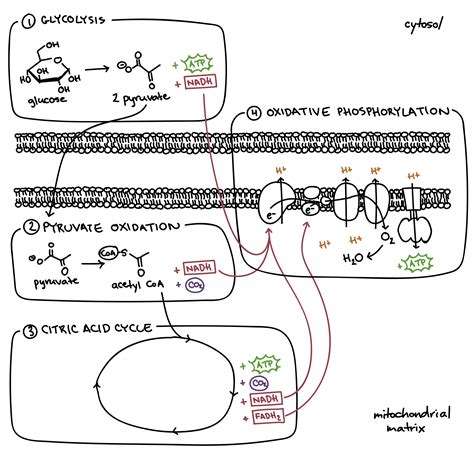 ① GLYCOLYSIS
cytosol
OH
O
OH
HO
OH
OH
glucose
⊖O
O
O
2 pyruvate
+ ATP
+ NADH
④ OXIDATIVE PHOSPHORYLATION
H+
H+
H+
H+
e-
e-
H+
H+
H+
O2
H2O
+ ATP
② PYRUVATE OXIDATION
⊖O
O
O
pyruvate
CoA-S
O
acetyl CoA
+ NADH
+ CO2
③ CITRIC ACID CYCLE
+ ATP
+ CO2
+ NADH
+ FADH2
mitochondrial
matrix